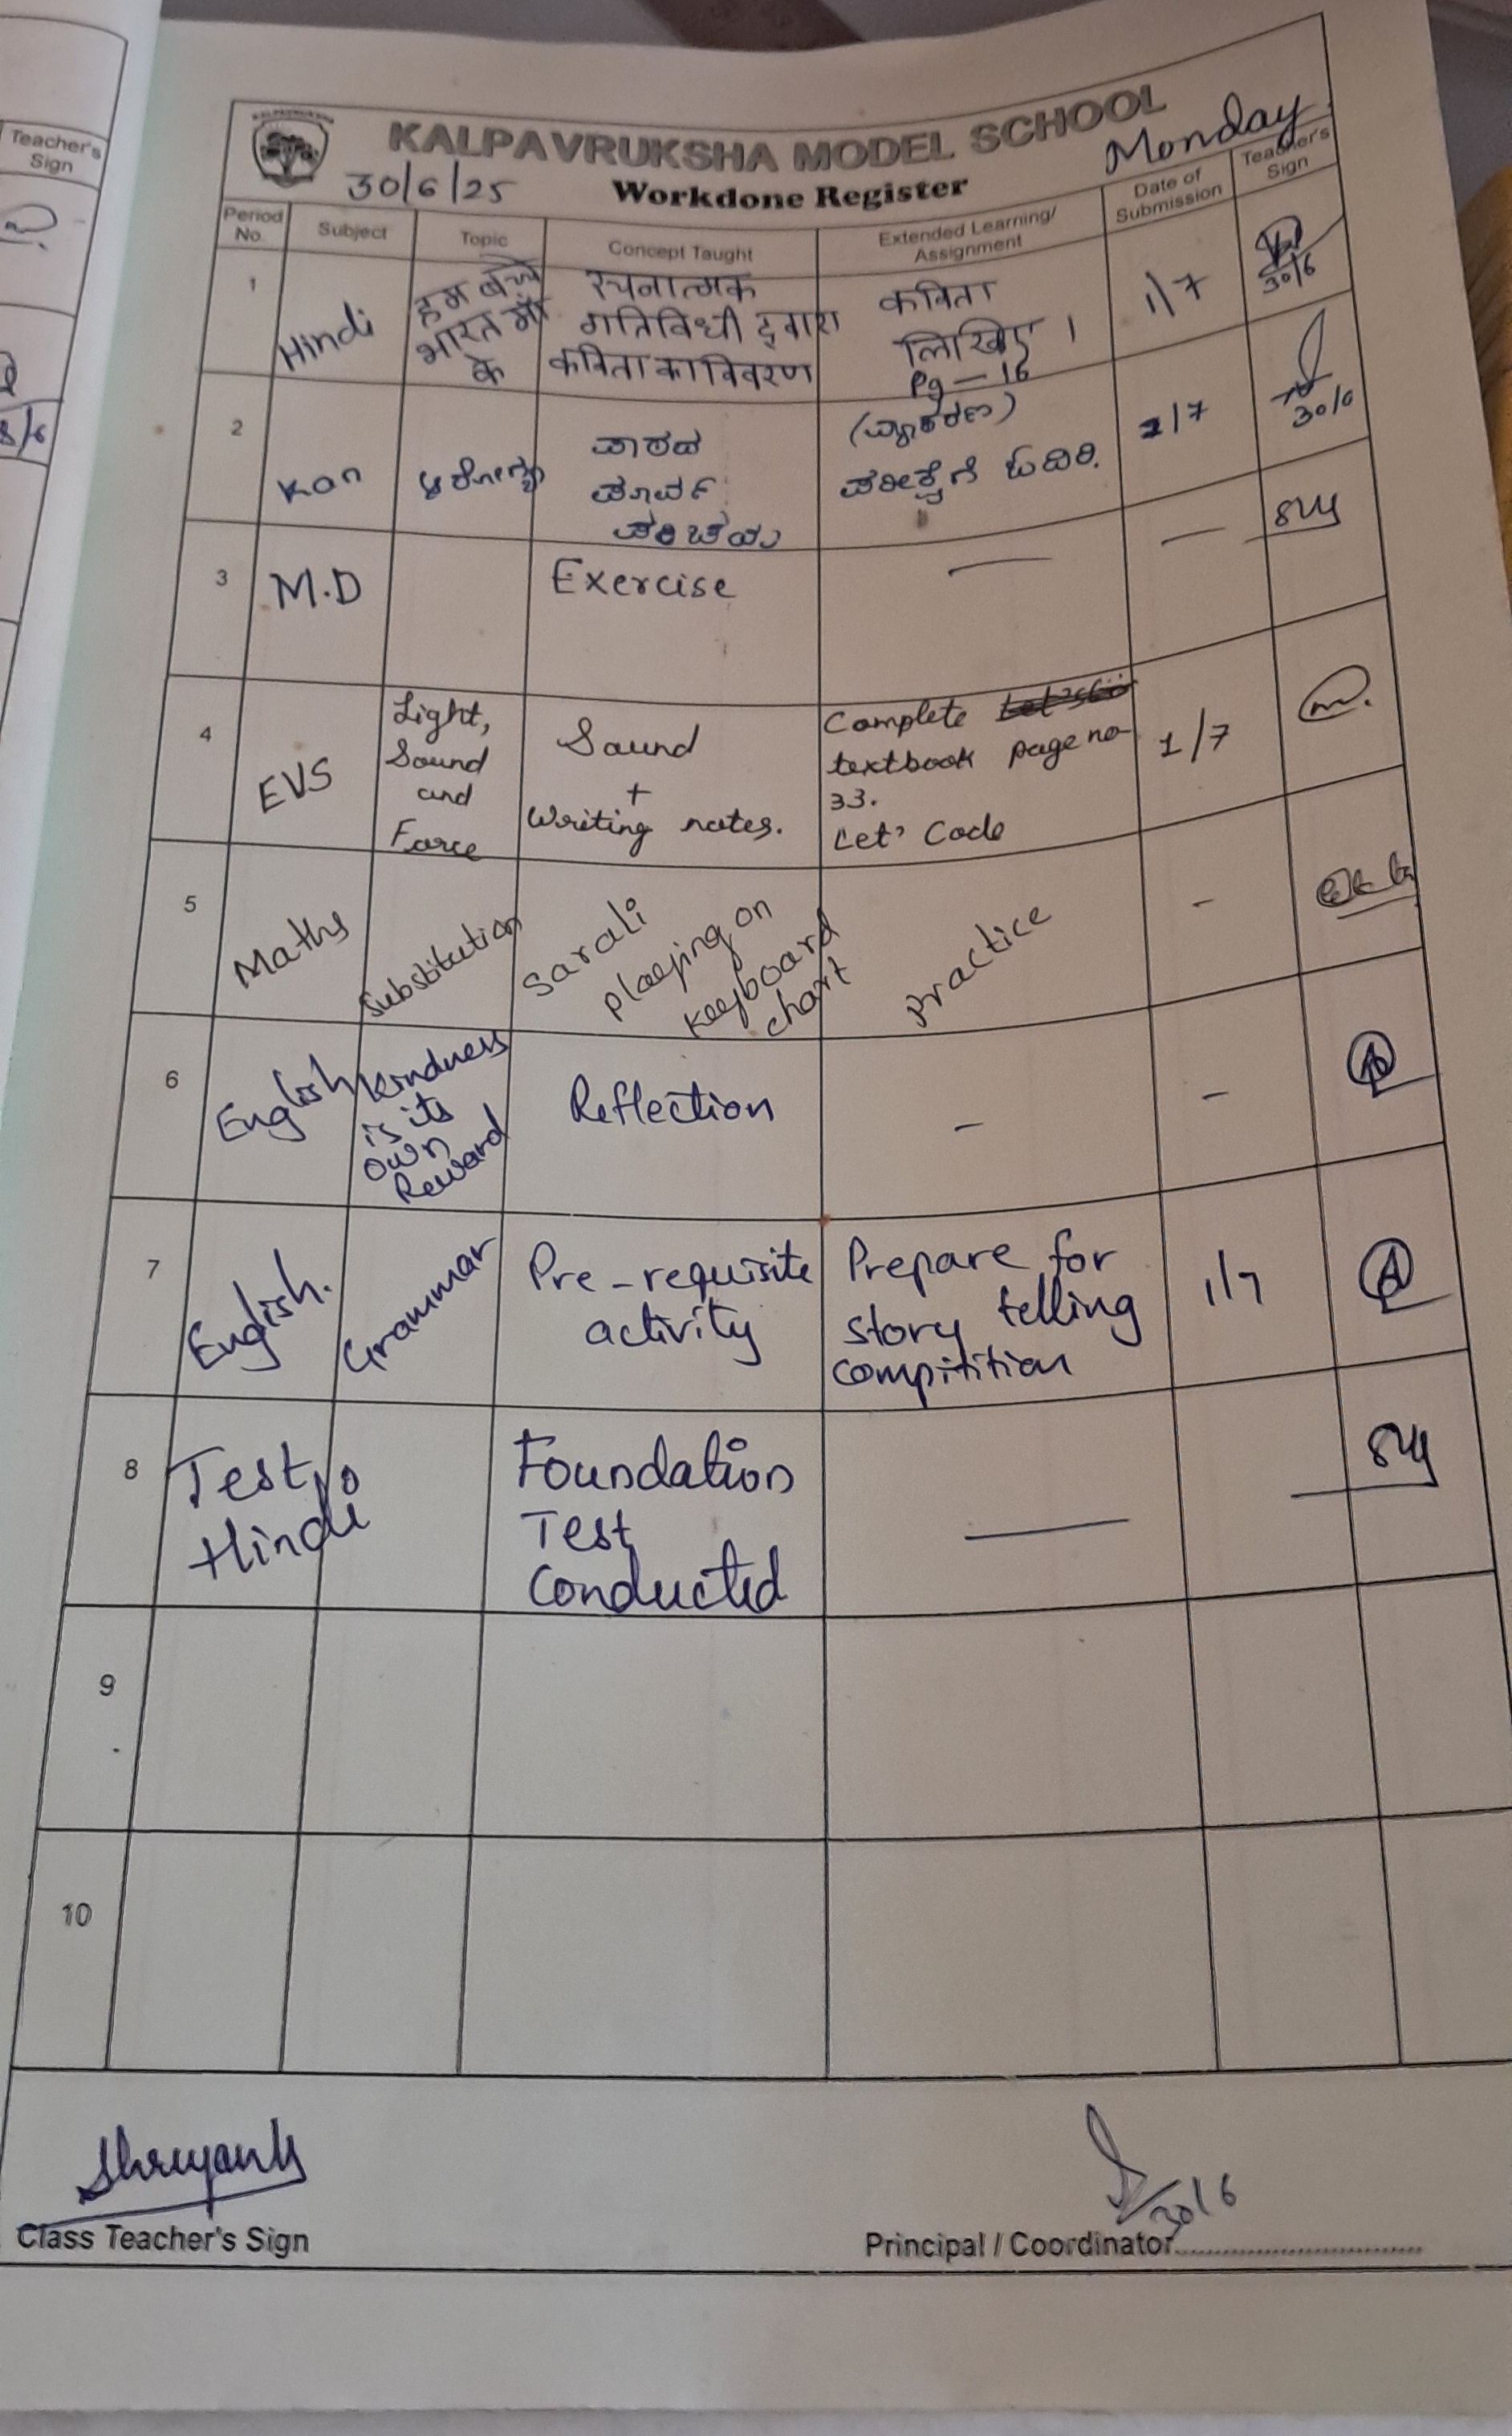 Teacher's
Sign
KALPAVRUKSHA MODEL SCHOOL
30/6/25
Workdone Register
Monday
Period
No.
Subject
Topic
Concept Taught
Extended Learning/
Assignment
Date of
Submission
Teacher's
Sign
1
Hindi
हम बच्चे
भारत माँ
के
रचनात्मक
गतिविधी द्वारा
कविता का विवरण
कविता
लिखिए ।
Pg - 16
1/7
30/6
2
Kan
ಆರೋಗ್ಯ
ಪಾಠದ
ಪೂರ್ವ
ಪರಿಚಯ
(ವ್ಯಾಕರಣ)
ಪರೀಕ್ಷೆಗೆ ಓದಿರಿ.
1/7
30/6
3
M.D
Exercise
—
—
4
EVS
Light,
Sound
and
Force
Sound
+
Writing notes.
Complete
textbook page no-
33.
Let' Code
1/7
5
Maths
Substitution
Sarali
playing on
keyboard
chart
practice
-
6
English
Kindness
is its
own
Reward
Reflection
-
-
7
English.
Grammar
Pre-requisite
activity
Prepare for
story telling
compitition
1/7
8
Test
Hindi
Foundation
Test
Conducted
—
9
10
Class Teacher's Sign
30/6
Principal / Coordinator